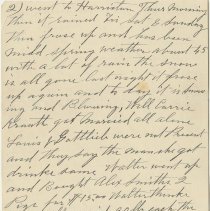 2) went to Harriston Thurs morning
Then it rained Fri Sat & Sunday
Then froze up and has been
mild spring weather about 45
with a lot of rain the snow
is all gone last night it froze
up again and to day it is snow
ing and Blowing, Well Carrie
Krauth got Married all alone
Louis & Gottlieb were not Present
and they say the man she got
drinks some Walter went up
and Bought Alex Smiths 2
Pigs for $15.00 Walter thinks
each the